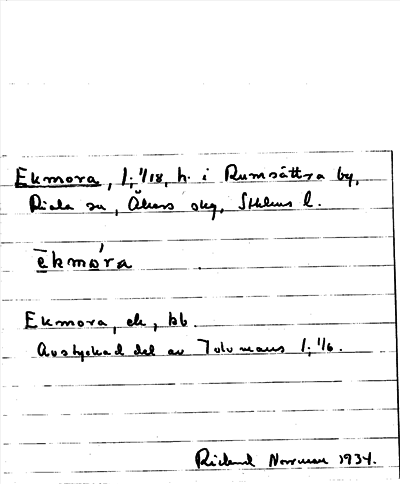 Ekmora, 1; 1/18, h. i Rumsättra by,
Riala sn, Åkers skg, Sthlms l.
ēkmo̱ŕa
Ekmora, ek, bb.
Avstyckad del av 1; 1/6.
Rickard 1934.